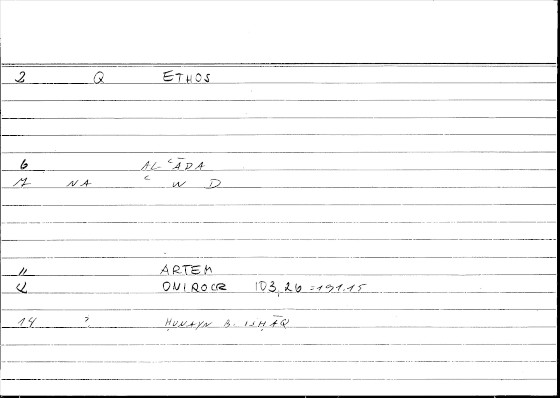 2 Q ETHOS
6 AL ʿĀDA
M NA ʿ W D
11 ARTEM
12 ONIROCR 103,26=191.15
14 ? ḤUNAYN B. ISḤĀQ